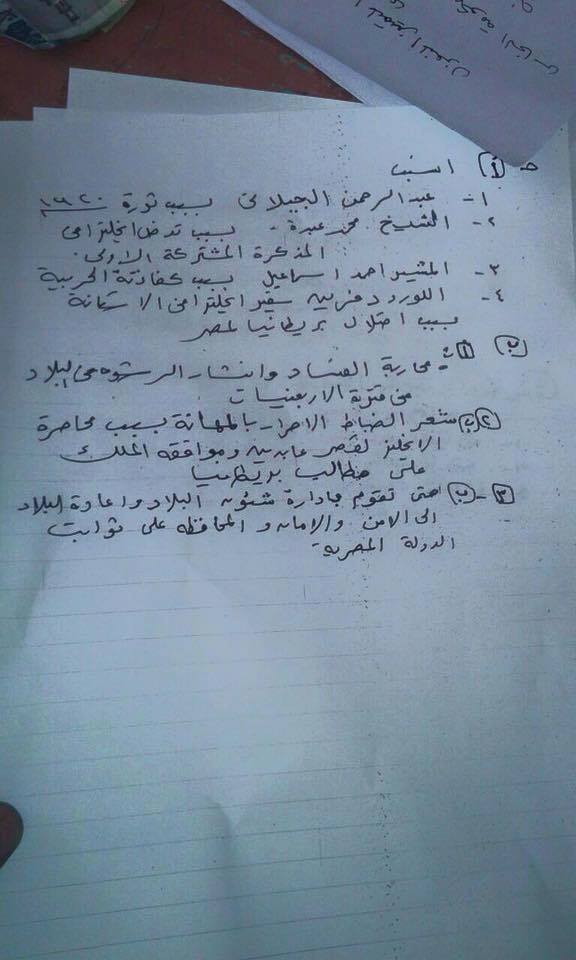 حـ (أ) انسب
١- عبد الرحمن الجيلانى بسبب ثورة ١٩٢٠
٢- الشيخ محمد عبدة - بسبب تدخل انجلترا فى
المذكرة المشتركة الاولى.
٣- المشير احمد اسماعيل بسبب كفائتة الحربية
٤- اللورد دفرين سفير انجلترا فى الاستانة
بسبب احتلال بريطانيا لمصر
(ب) ١- محاربة الفساد وانتشار الرشوه فى البلاد
فى فترة الاربعنيات
٢- (ب) شعر الضباط الاحرار بالمهانة بسبب محاصرة
الانجليز لقصر عابدين وموافقه الملك
على مطالب بريطانيا
٣- (ب) حتى تقوم بادارة شئون البلاد واعادة البلاد
الى الامن والامان والمحافظه على ثوابت
الدولة المصرية